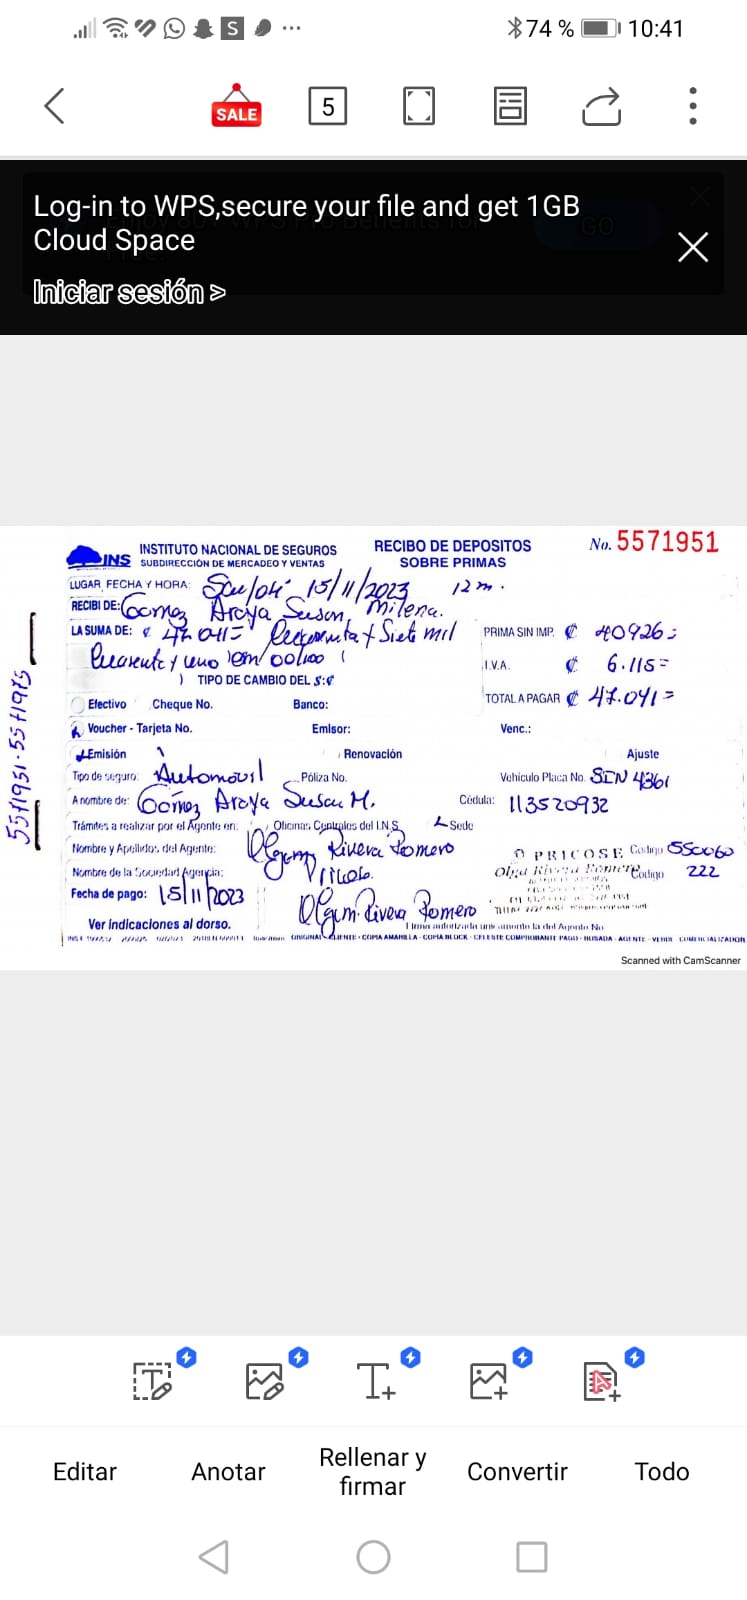 74 % 10:41
SALE 5
Log-in to WPS,secure your file and get 1GB
Cloud Space
GO
Iniciar sesión >
INS INSTITUTO NACIONAL DE SEGUROS RECIBO DE DEPOSITOS No. 5571951
SUBDIRECCIÓN DE MERCADEO Y VENTAS SOBRE PRIMAS
LUGAR, FECHA Y HORA: 15/11/2023 12 m.
RECIBI DE: Gómez Araya Susan Milena.
LA SUMA DE: ¢ Siete mil PRIMA SIN IMP. ¢ 40926=
y uno I.V.A. ¢ 6.115=
) TIPO DE CAMBIO DEL $:¢ TOTAL A PAGAR ¢ 47.041=
Efectivo Cheque No. Banco:
Voucher - Tarjeta No. Emisor: Venc.:
Emisión Renovación Ajuste
Tipo de seguro: Automovil Póliza No. Vehiculo Placa No.
A nombre de: Gómez Araya Susan M. Cédula: 113520932
Trámites a realizar por el Agente en: Oficinas Centrales del I.N.S. Sede
Nombre y Apellidos del Agente: Rivera Romero PRICOSE Codigo 550060
Nombre de la Sociedad Agencia: Olga Rivera Romero Codigo 222
Fecha de pago: 15/11/2023 Rivera Romero
Ver indicaciones al dorso. Firma autorizada unicamente la del Agente No.
ORIGINAL CLIENTE - COPIA AMARILLA - COPIA BLOCK - CELESTE COMPROBANTE PAGO - ROSADA - AGENTE - VERDE COMERCIALIZADOR
5571951-5571975
Scanned with CamScanner
Editar Anotar Rellenar y firmar Convertir Todo